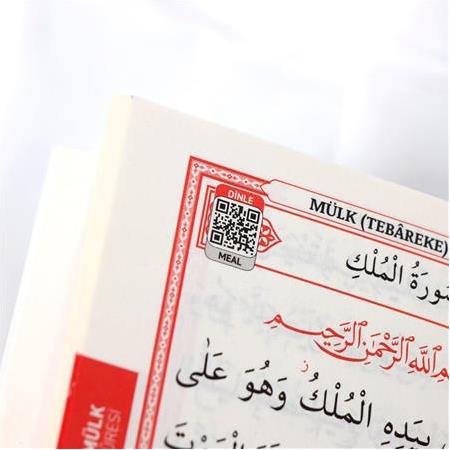 DİNLE
MEAL
MÜLK (TEBÂREKE)
سُورَةُ الْمُلْكِ
اللهِ الرَّحْمٰنِ الرَّحِيمِ
بِيَدِهِ الْمُلْكُ وَهُوَ عَلٰى
MÜLK